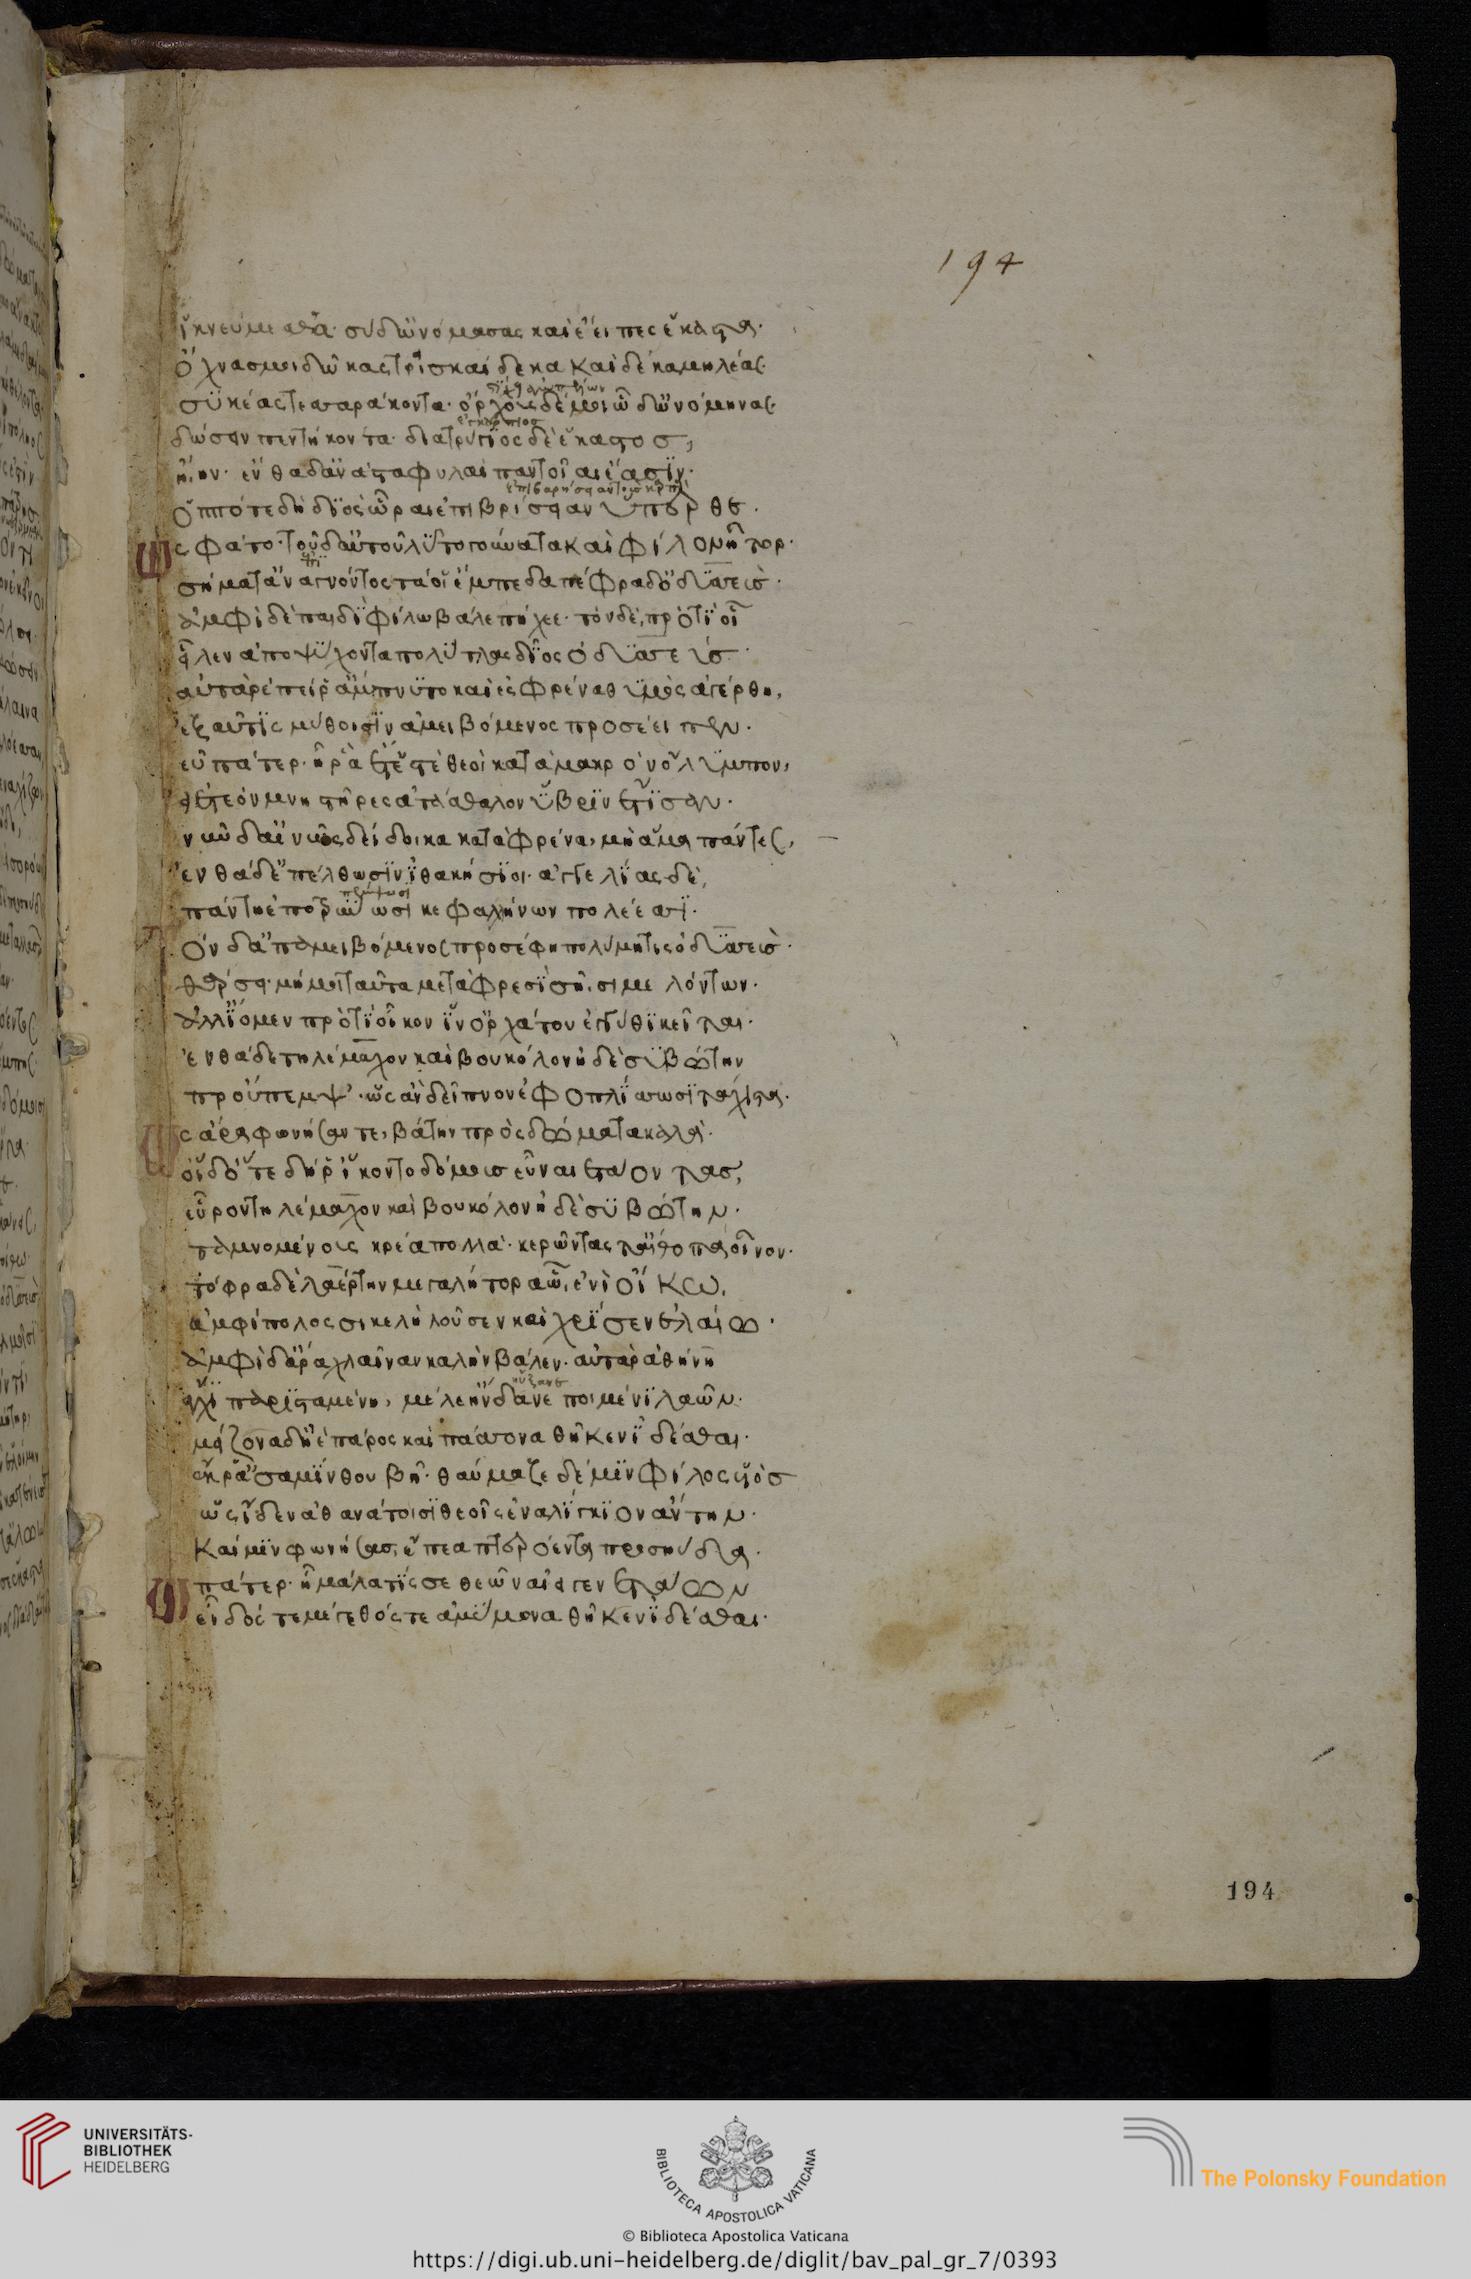 194
ἱκνεύμεσθα· σὺ δ' ὠνόμασας καὶ ἔειπες ἕκαστα·
ὄχνας μοι δῶκας τρισκαίδεκα καὶ δέκα μηλέας·
συκέας τεσσαράκοντα· ὄρχους δέ μοι ὧδ' ὠνόμηνας·
δώσειν πεντήκοντα· διατρύγιος δὲ ἕκαστος,
ἤιην· ἔνθα δ' ἀνα σταφυλαὶ παντοῖαι ἔασιν·
ὁππότε δὴ διὸς ὧραι ἐπιβρίσειαν ὕπερθε.
ὣς φάτο· τοῦ δ' αὐτοῦ λύτο γούνατα καὶ φίλον ἦτορ·
σήματ' ἀναγνόντος τά οἱ ἔμπεδα πέφραδ' ὀδυσσεύς·
ἀμφὶ δὲ παιδὶ φίλω βάλε πήχεε· τὸν δὲ προτὶ οἷ
εἷλεν ἀποψύχοντα πολύτλας δῖος ὀδυσσεύς·
αὐτὰρ ἐπεί ῥ' ἄμπνυτο καὶ ἐς φρένα θυμὸς ἀγέρθη,
ἐξ αὖτις μύθοισιν ἀμειβόμενος προσέειπεν·
ζεῦ πάτερ· ἦ ῥα ἔτ' ἐστὲ θεοὶ κατὰ μακρὸν ὄλυμπον,
εἰ ἐτεὸν μνηστῆρες ἀτάσθαλον ὕβριν ἔτισαν·
νῦν δ' αἰνῶς δείδοικα κατὰ φρένα, μὴ ἅμα πάντες,
ἐνθάδ' ἐπέλθωσιν ἰθακήσιοι· ἀγγελίας δὲ,
πάντη ἐποτρύνωσι κεφαλήνων πολέεσσι·
τὸν δ' ἀπαμειβόμενος προσέφη πολύμητις ὀδυσσεύς·
θάρσει· μή μοι ταῦτα μετὰ φρεσὶ σῆισι μελόντων·
ἀλλ' ἴομεν προτὶ οἶκον ἵν' ὀρχάτου ἐγγύθι κεῖται·
ἔνθα δὲ τηλέμαχον καὶ βουκόλον ἠδὲ συβώτην
προὔπεμψ'· ὡς ἂν δεῖπνον ἐφοπλίσσωσι τάχιστα·
ὣς ἄρα φωνήσαντε, βάτην πρὸς δώματα καλά·
οἱ δ' ὅτε δή ῥ' ἵκοντο δόμους εὖ ναιετάοντας,
εὗρον τηλέμαχον καὶ βουκόλον ἠδὲ συβώτην·
ταμνομένους κρέα πολλὰ· κερῶντάς τ' αἴθοπα οἶνον·
τόφρα δὲ λαέρτην μεγαλήτορα ὧι ἐνὶ οἴκω,
ἀμφίπολος σικελὴ λοῦσεν καὶ χρῖσεν ἐλαίω·
ἀμφὶ δ' ἄρα χλαῖναν καλὴν βάλεν· αὐτὰρ ἀθήνη
ἄγχι παρισταμένη, μέλε' ἤλδανε ποιμένι λαῶν·
μείζονα δ' ἠὲ πάρος καὶ πάσσονα θῆκεν ἰδέσθαι·
ἐκ ῥ' ἀσαμίνθου βῆ· θαύμαζε δέ μιν φίλος υἱὸς
ὡς ἴδεν ἀθανάτοισι θεοῖς ἐναλίγκιον ἄντην·
καί μιν φωνήσας, ἔπεα πτερόεντα προσηύδα·
ὦ πάτερ· ἦ μάλα τίς σε θεῶν αἰειγενετάων
εἶδός τε μέγεθός τε ἀμύμονα θῆκεν ἰδέσθαι·
194
UNIVERSITÄTS-
BIBLIOTHEK
HEIDELBERG
BIBLIOTECA APOSTOLICA VATICANA
The Polonsky Foundation
© Biblioteca Apostolica Vaticana
https://digi.ub.uni-heidelberg.de/diglit/bav_pal_gr_7/0393